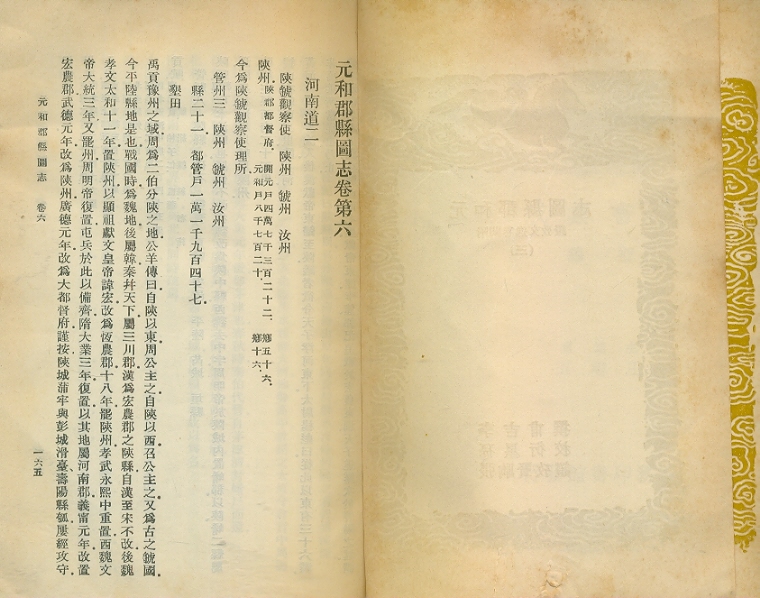 元和郡縣圖志卷第六
河南道二
陝虢觀察使 陝州 虢州 汝州
陝州 陝郡都督府 開元戶四萬七千三百二十二 鄉五十六
元和戶八千七百二十 鄉十六
今爲陝虢觀察使理所
管州三 陝州 虢州 汝州
縣二十一 都管戶一萬一千九百四十七
墾田
禹貢豫州之域周爲二伯分陝之地公羊傳曰自陝以東周公主之自陝以西召公主之又爲古之虢國
今平陸縣地是也戰國時爲魏地後屬韓秦幷天下屬三川郡漢爲宏農郡之陝縣自漢至宋不改後魏
孝文太和十一年置陝州以顯祖獻文皇帝諱宏改爲恆農郡十八年罷陝州孝武永熙中重置西魏文
帝大統三年又罷州周明帝復置屯兵於此以備齊隋大業三年復置以其地屬河南郡義甯元年改置
宏農郡武德元年改爲陝州廣德元年改爲大都督府謹按陝城蒲牢與彭城滑臺壽陽縣瓠屢經攻守
元和郡縣圖志 卷六
一六五